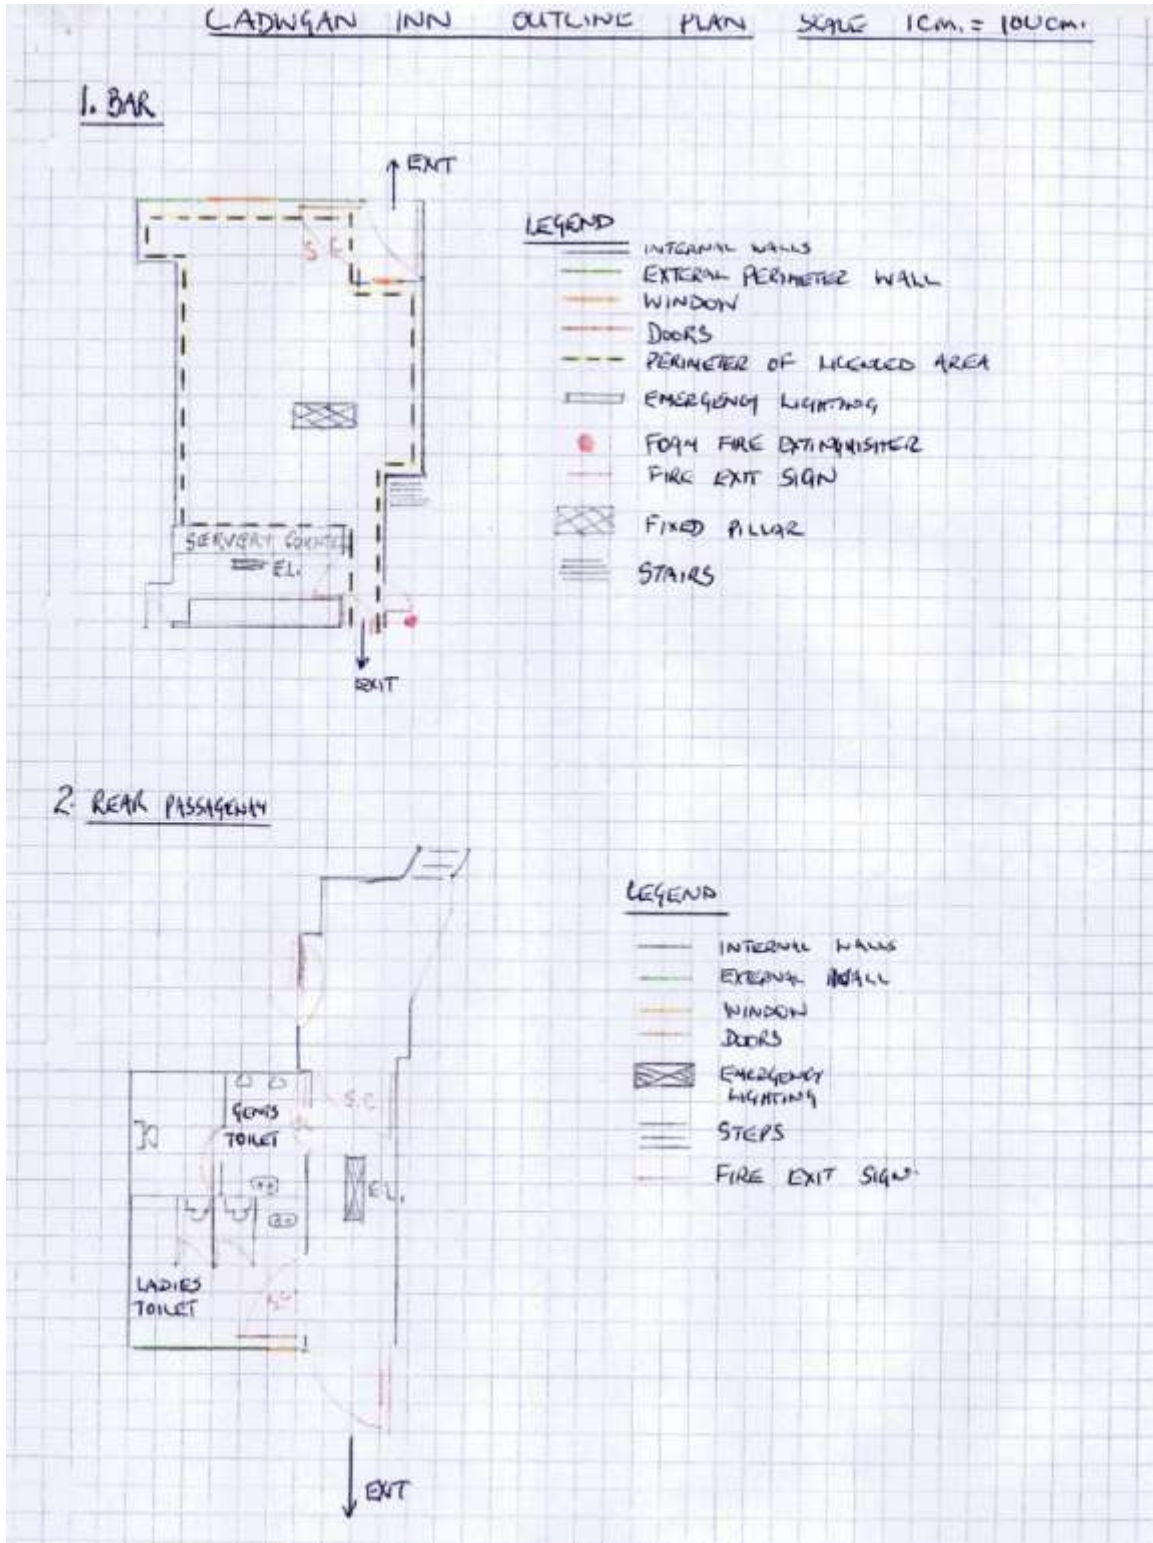 CADWGAN INN OUTLINE PLAN SCALE 1cm. = 100cm.
1. BAR
EXIT
S.C
SERVERY COUNTER
E.L.
EXIT
LEGEND
INTERNAL WALLS
EXTERAL PERIMETER WALL
WINDOW
DOORS
PERIMETER OF LICENCED AREA
EMERGENCY LIGHTING
FOAM FIRE EXTINGUISHER
FIRE EXIT SIGN
FIXED PILLAR
STAIRS
2. REAR PASSAGEWAY
GENTS
TOILET
S.C
E.L.
LADIES
TOILET
EXIT
LEGEND
INTERNAL WALLS
EXTERNAL WALL
WINDOW
DOORS
EMERGENCY
LIGHTING
STEPS
FIRE EXIT SIGN.